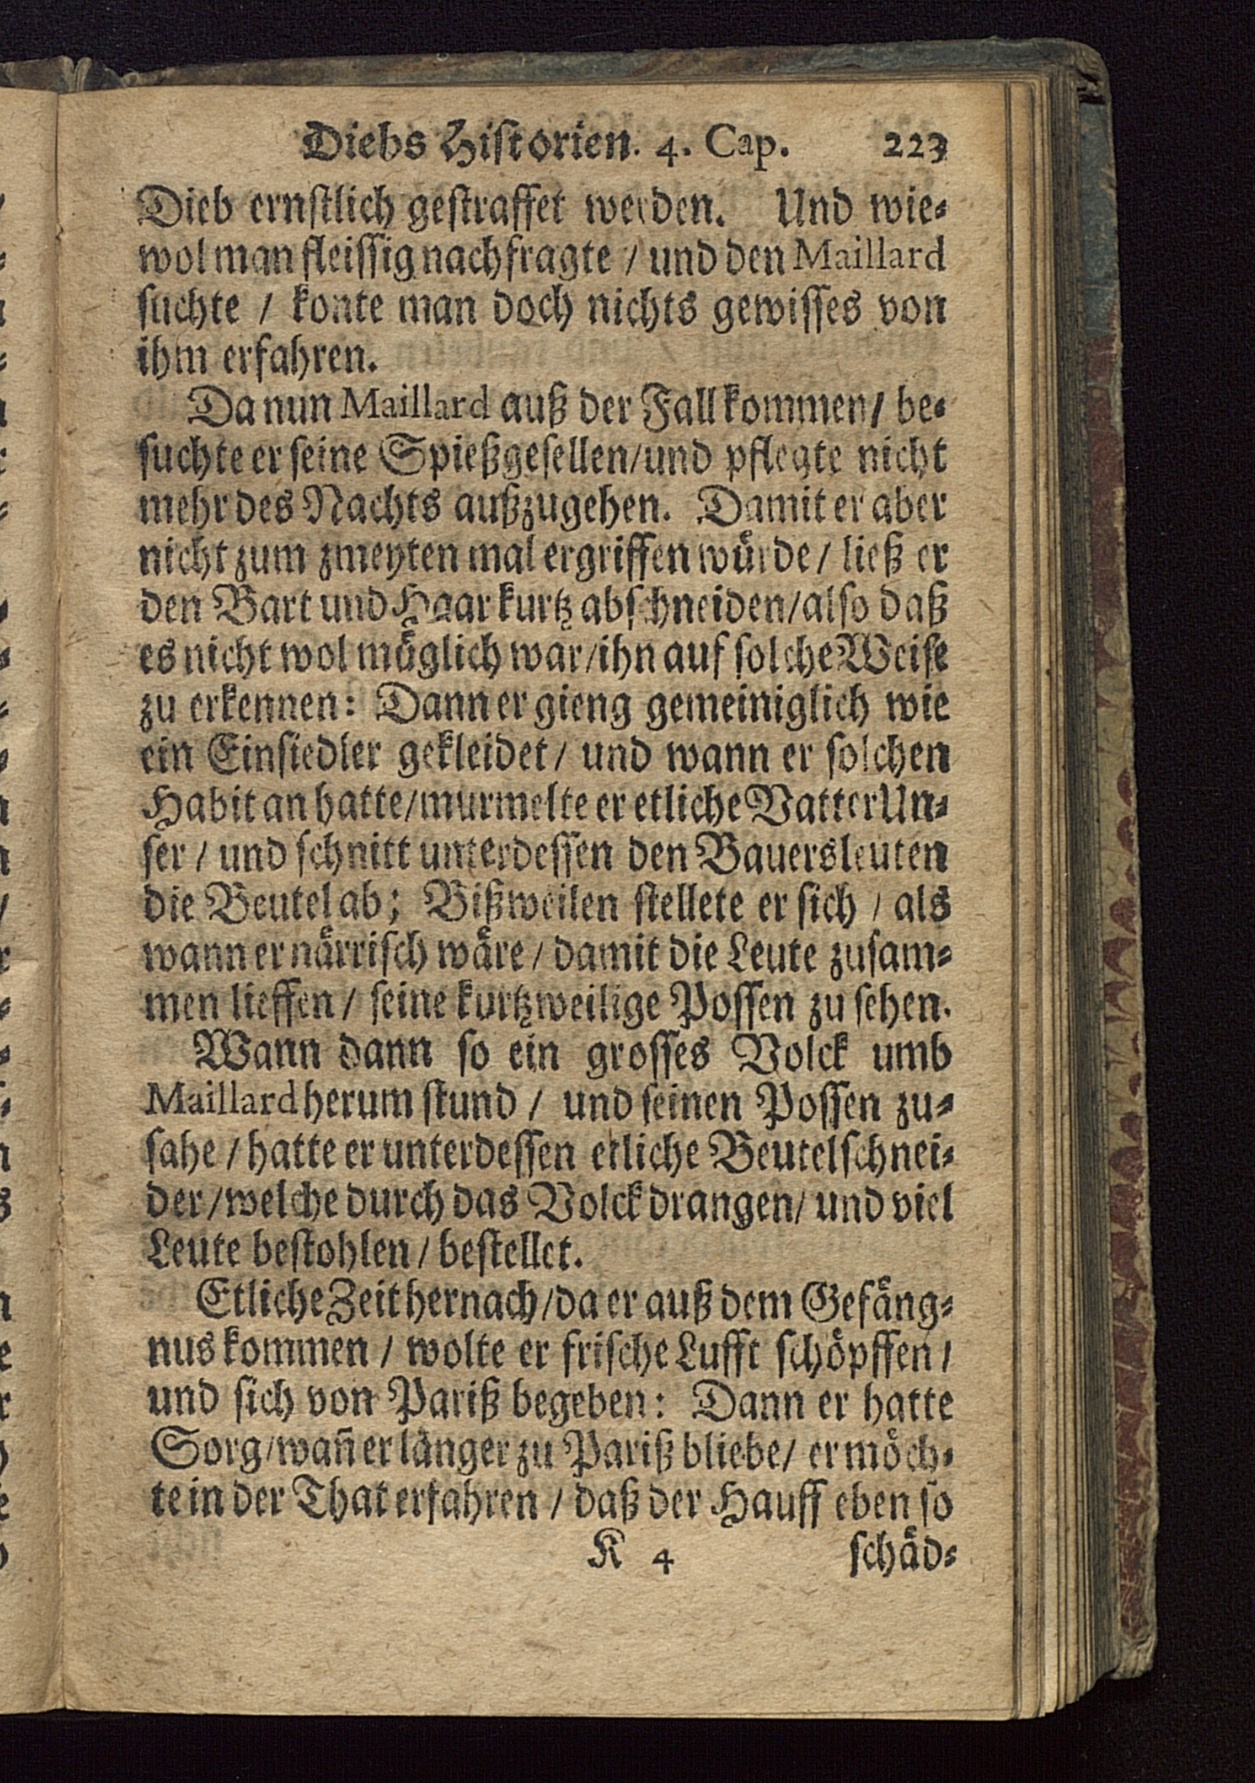 Diebs Historien. 4. Cap. 223
Dieb ernstlich gestraffet werden. Und wie-
wol man fleissig nachfragte / und den Maillard
suchte / konte man doch nichts gewisses von
ihm erfahren.
Da nun Maillard auß der Fall kommen / be-
suchte er seine Spießgesellen / und pflegte nicht
mehr des Nachts außzugehen. Damit er aber
nicht zum zmeyten mal ergriffen würde / ließ er
den Bart und Haar kurtz abschneiden / also daß
es nicht wol möglich war / ihn auf solche Weise
zu erkennen: Dann er gieng gemeiniglich wie
ein Einsiedler gekleidet / und wann er solchen
Habit an hatte / murmelte er etliche Vatter Un-
ser / und schnitt unterdessen den Bauersleuten
die Beutel ab; Bißweilen stellete er sich / als
wann er närrisch wäre / damit die Leute zusam-
men lieffen / seine kurtzweilige Possen zu sehen.
Wann dann so ein grosses Volck umb
Maillard herum stund / und seinen Possen zu-
sahe / hatte er unterdessen etliche Beutelschnei-
der / welche durch das Volck drangen / und viel
Leute bestohlen / bestellet.
Etliche Zeit hernach / da er auß dem Gefäng-
nus kommen / wolte er frische Lufft schöpffen /
und sich von Pariß begeben: Dann er hatte
Sorg / wañ er länger zu Pariß bliebe / er möch-
te in der That erfahren / daß der Hauff eben so
K 4 schäd-